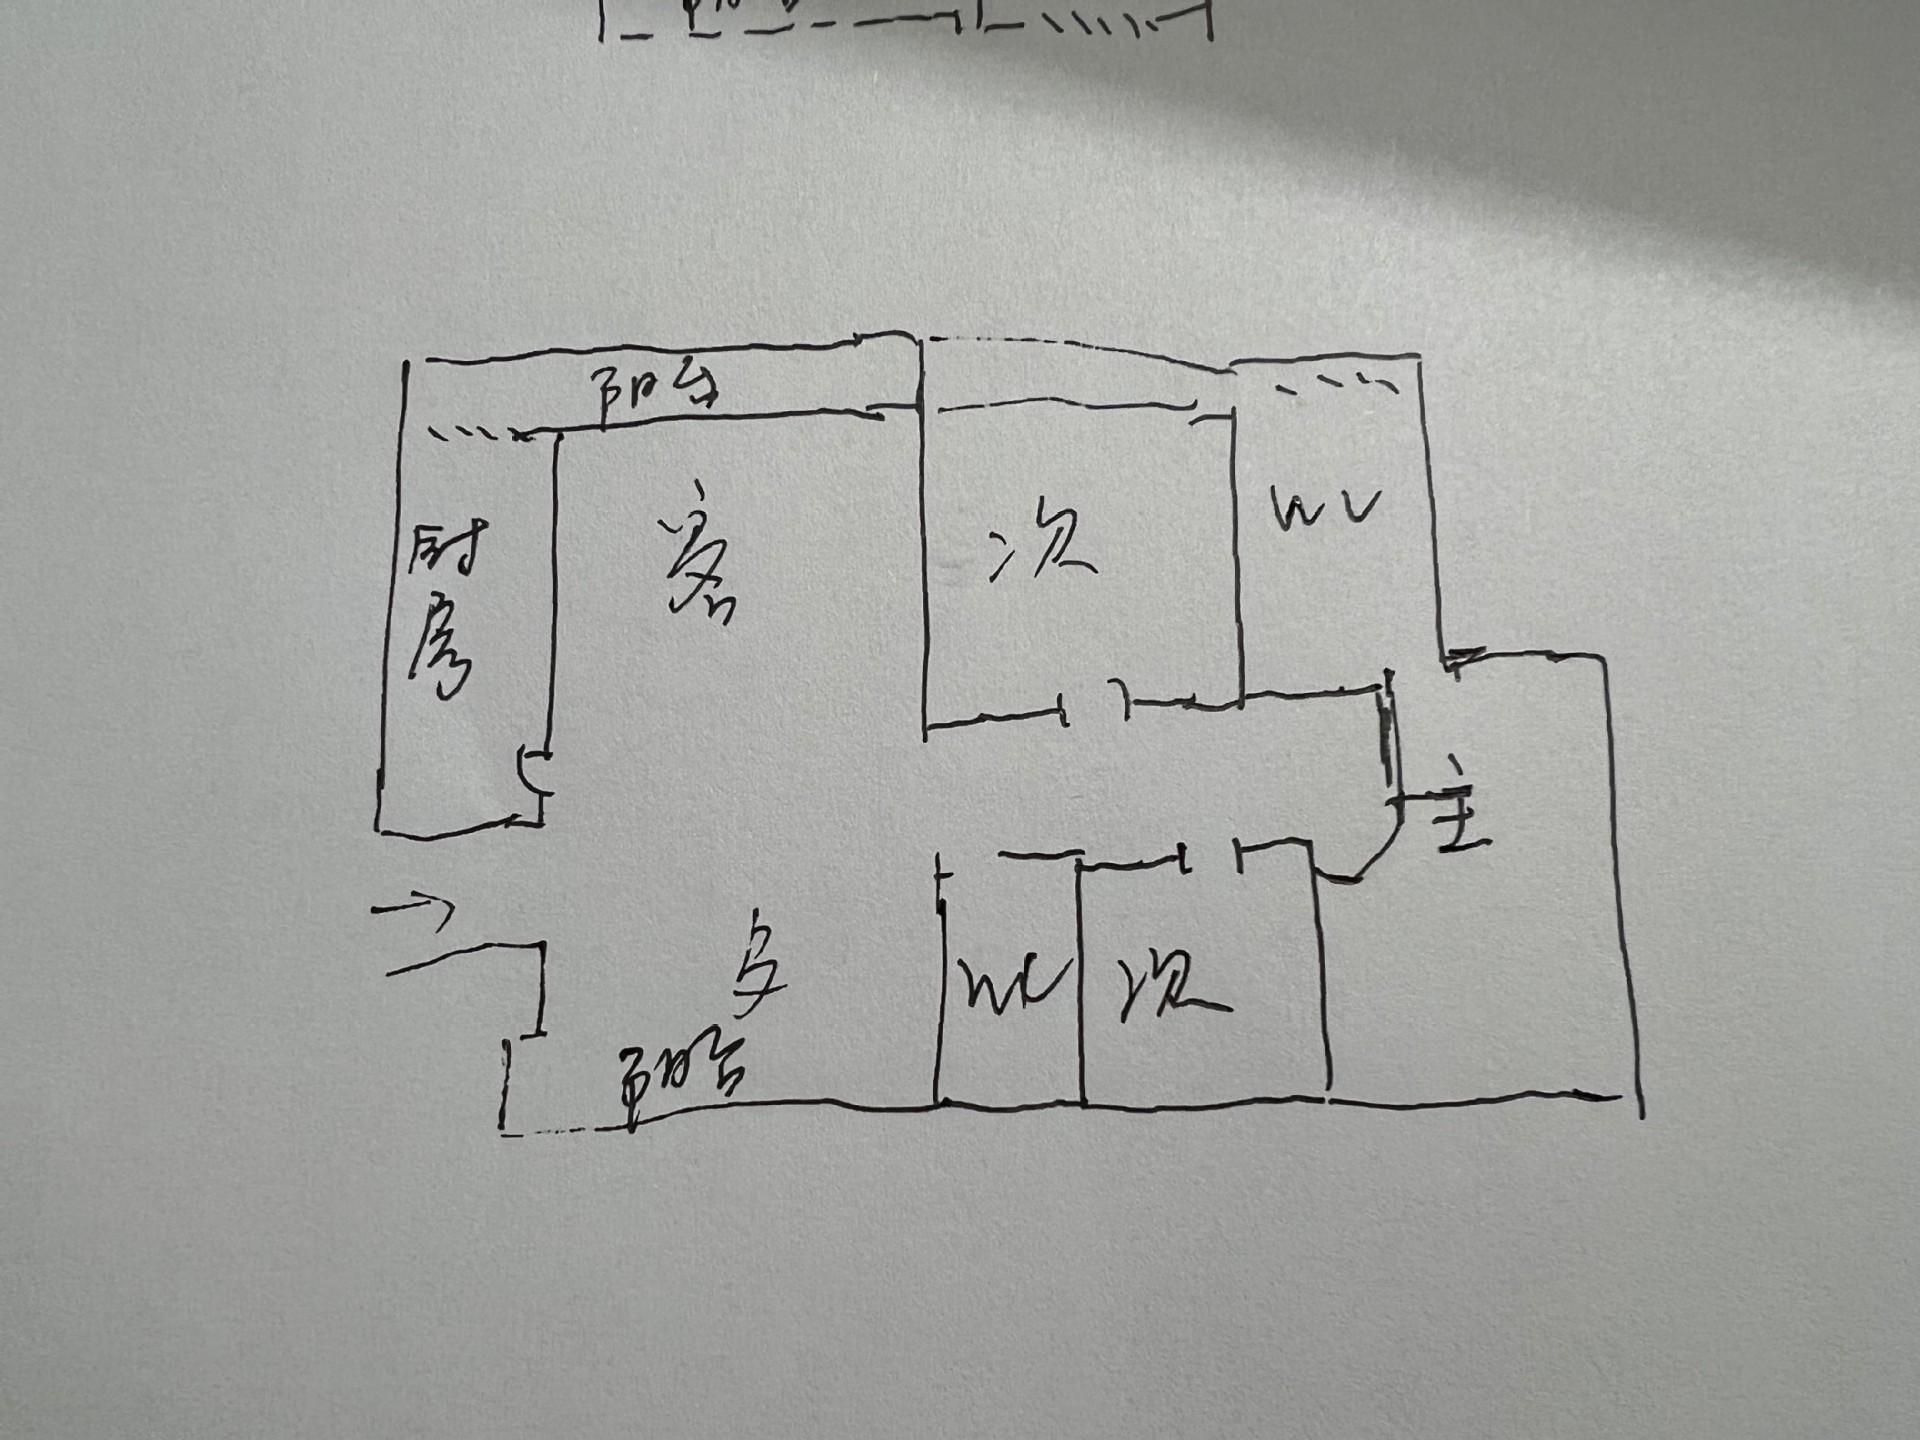 阳台
厨
房
客
次
WC
主
WC
次
阳台